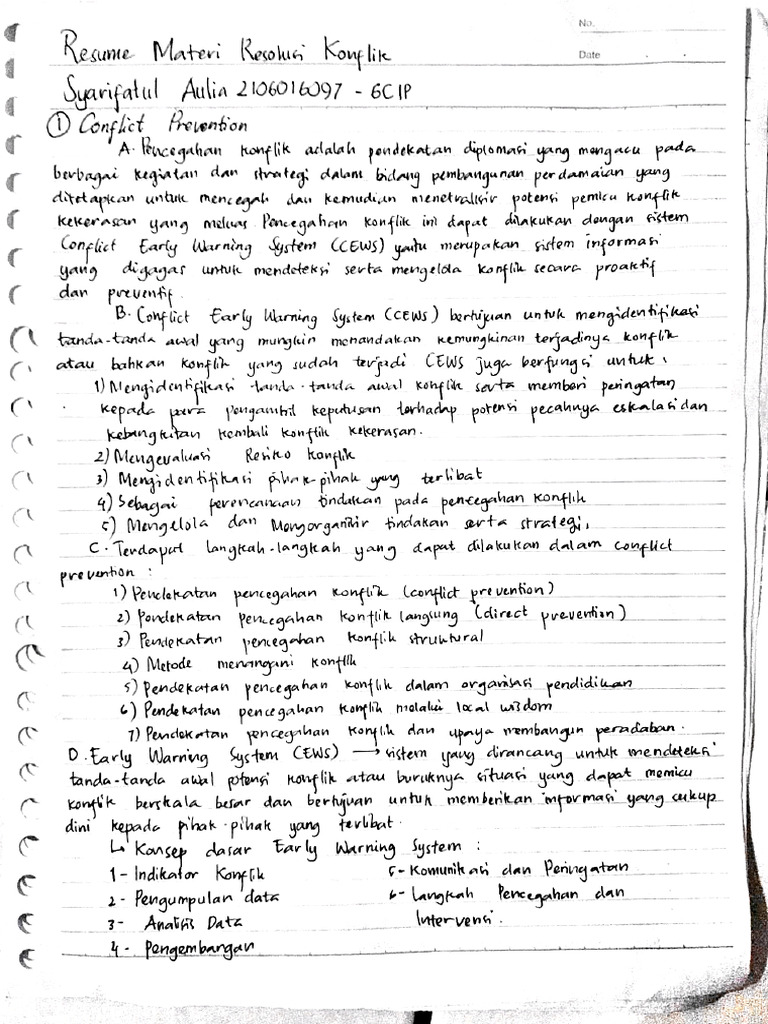 No.
Date
Resume Materi Resolusi Konflik
Syarifatul Aulia 2106016097 - 6C IP
① Conflict Prevention
A. Pencegahan konflik adalah pendekatan diplomasi yang mengacu pada
berbagai kegiatan dan strategi dalam bidang pembangunan perdamaian yang
ditetapkan untuk mencegah dan kemudian menetralisir potensi pemicu konflik
kekerasan yang meluas. Pencegahan konflik ini dapat dilakukan dengan sistem
Conflict Early Warning System (CEWS) yaitu merupakan sistem informasi
yang digagas untuk mendeteksi serta mengelola konflik secara proaktif
dan preventif.
B. Conflict Early Warning System (CEWS) bertujuan untuk mengidentifikasi
tanda-tanda awal yang mungkin menandakan kemungkinan terjadinya konflik
atau bahkan konflik yang sudah terjadi CEWS juga berfungsi untuk :
1) Mengidentifikasi tanda-tanda awal konflik serta memberi peringatan
kepada para pengambil keputusan terhadap potensi pecahnya eskalasi dan
kebangkitan kembali konflik kekerasan.
2) Mengevaluasi Resiko konflik
3) Mengidentifikasi pihak-pihak yang terlibat
4) Sebagai perencanaan tindakan pada pencegahan konflik
5) Mengelola dan Mengorganisir tindakan serta strategi,
C. Terdapat langkah-langkah yang dapat dilakukan dalam conflict
prevention :
1) Pendekatan pencegahan konflik (conflict prevention)
2) Pendekatan pencegahan konflik langsung (direct prevention)
3) Pendekatan pencegahan konflik struktural
4) Metode menangani konflik
5) Pendekatan pencegahan konflik dalam organisasi pendidikan
6) Pendekatan pencegahan konflik melalui local wisdom
7) Pendekatan pencegahan konflik dan upaya membangun peradaban.
D. Early Warning System (EWS) → sistem yang dirancang untuk mendeteksi
tanda-tanda awal potensi konflik atau buruknya situasi yang dapat memicu
konflik berskala besar dan bertujuan untuk memberikan informasi yang cukup
dini kepada pihak-pihak yang terlibat.
↳ Konsep dasar Early Warning System :
1- Indikator Konflik
2- Pengumpulan data
3- Analisis Data
4- Pengembangan
5- Komunikasi dan Peringatan
6- Langkah Pencegahan dan
Intervensi.